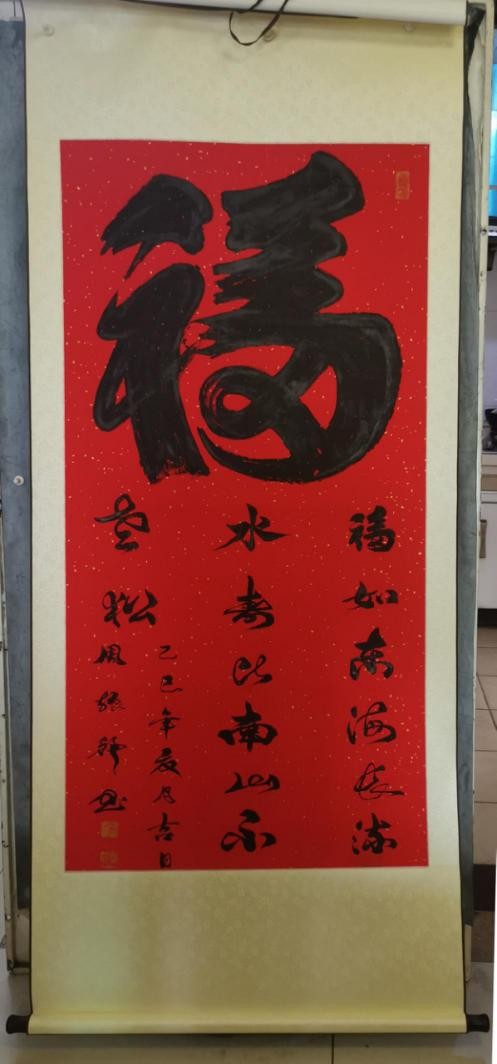 福
福如东海长流
水寿比南山不
老松
乙巳年夏月吉日